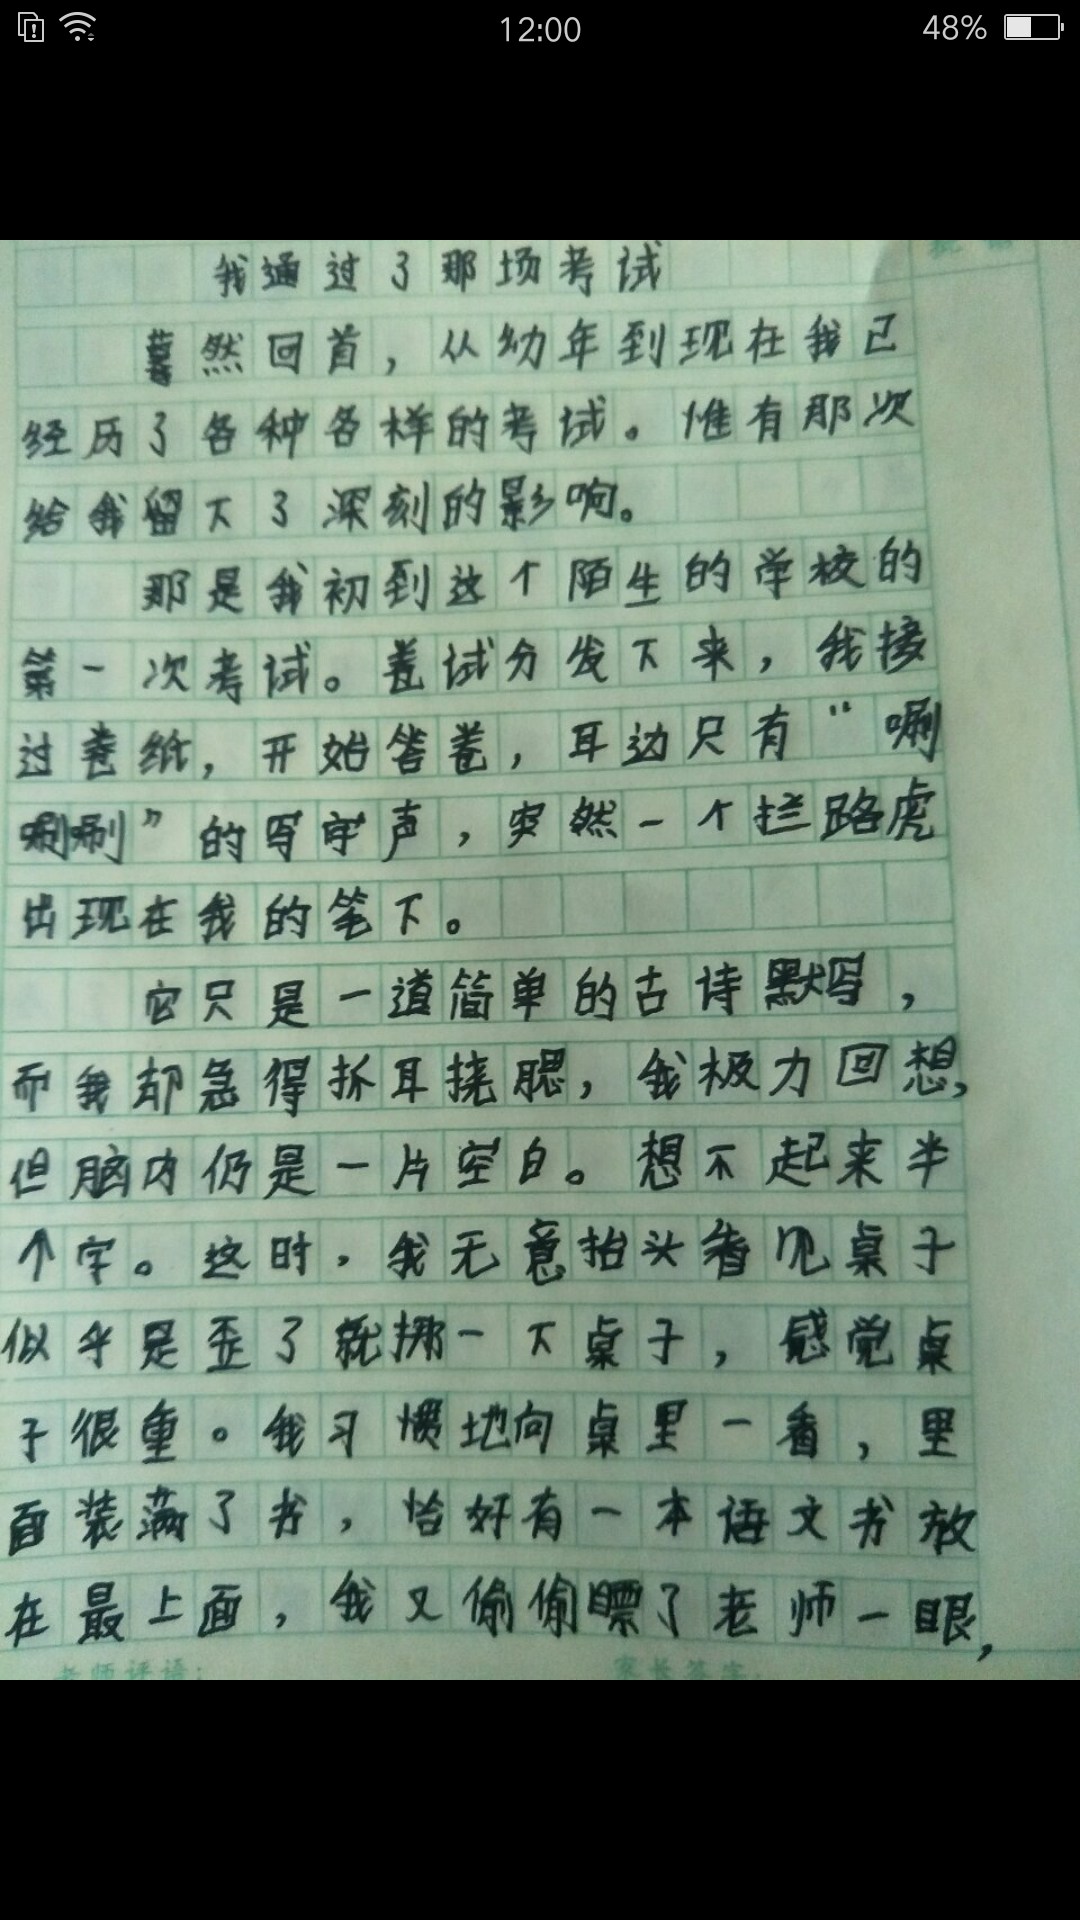 12:00
48%
我通过了那场考试
蓦然回首，从幼年到现在我已
经历了各种各样的考试。惟有那次
给我留下了深刻的影响。
那是我初到这个陌生的学校的
第一次考试。卷试分发下来，我接
过卷纸，开始答卷，耳边只有“唰
唰唰”的写字声，突然一个拦路虎
出现在我的笔下。
它只是一道简单的古诗默写，
而我却急得抓耳挠腮，我极力回想，
但脑内仍是一片空白。想不起来半
个字。这时，我无意抬头看见桌子
似乎是歪了就挪一下桌子，感觉桌
子很重。我习惯地向桌里一看，里
面装满了书，恰好有一本语文书放
在最上面，我又偷偷瞟了老师一眼，
老师评语：
家长签字：